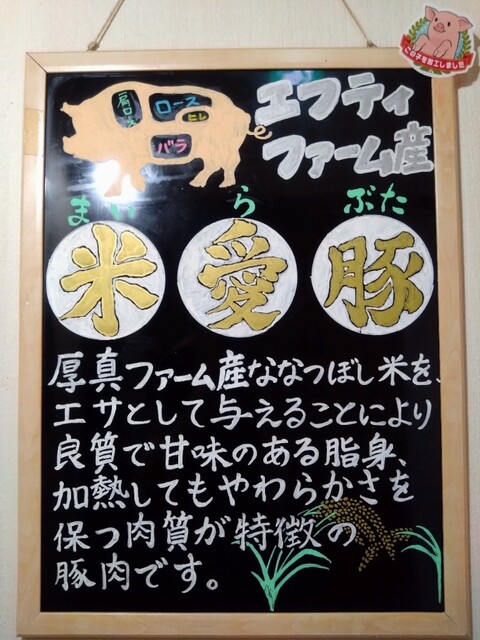 この子を加工しました
肩ロース
ロース
ヒレ
バラ
エフティ
ファーム産
まい ら ぶた
米 愛 豚
厚真ファーム産ななつぼし米を、
エサとして与えることにより
良質で甘味のある脂身、
加熱してもやわらかさを
保つ肉質が特徴の
豚肉です。